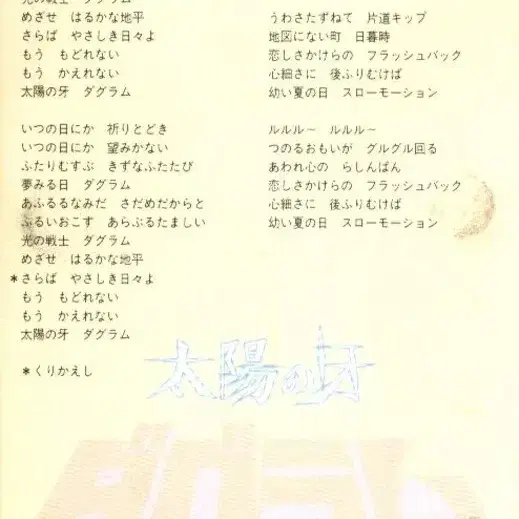 光の戦士　ダグラム
めざせ　はるかな地平
さらば　やさしき日々よ
もう　もどれない
もう　かえれない
太陽の牙　ダグラム
いつの日にか　祈りとどき
いつの日にか　望みかない
ふたりむすぶ　きずなふたたび
夢みる日　ダグラム
あふるるなみだ　さだめだからと
ふるいおこす　あらぶるたましい
光の戦士　ダグラム
めざせ　はるかな地平
＊さらば　やさしき日々よ
もう　もどれない
もう　かえれない
太陽の牙　ダグラム
＊くりかえし
うわさたずねて　片道キップ
地図にない町　日暮時
恋しさかけらの　フラッシュバック
心細さに　後ふりむけば
幼い夏の日　スローモーション
ルルル〜　ルルル〜
つのるおもいが　グルグル回る
あわれ心の　らしんばん
恋しさかけらの　フラッシュバック
心細さに　後ふりむけば
幼い夏の日　スローモーション
太陽の牙
ダグラム